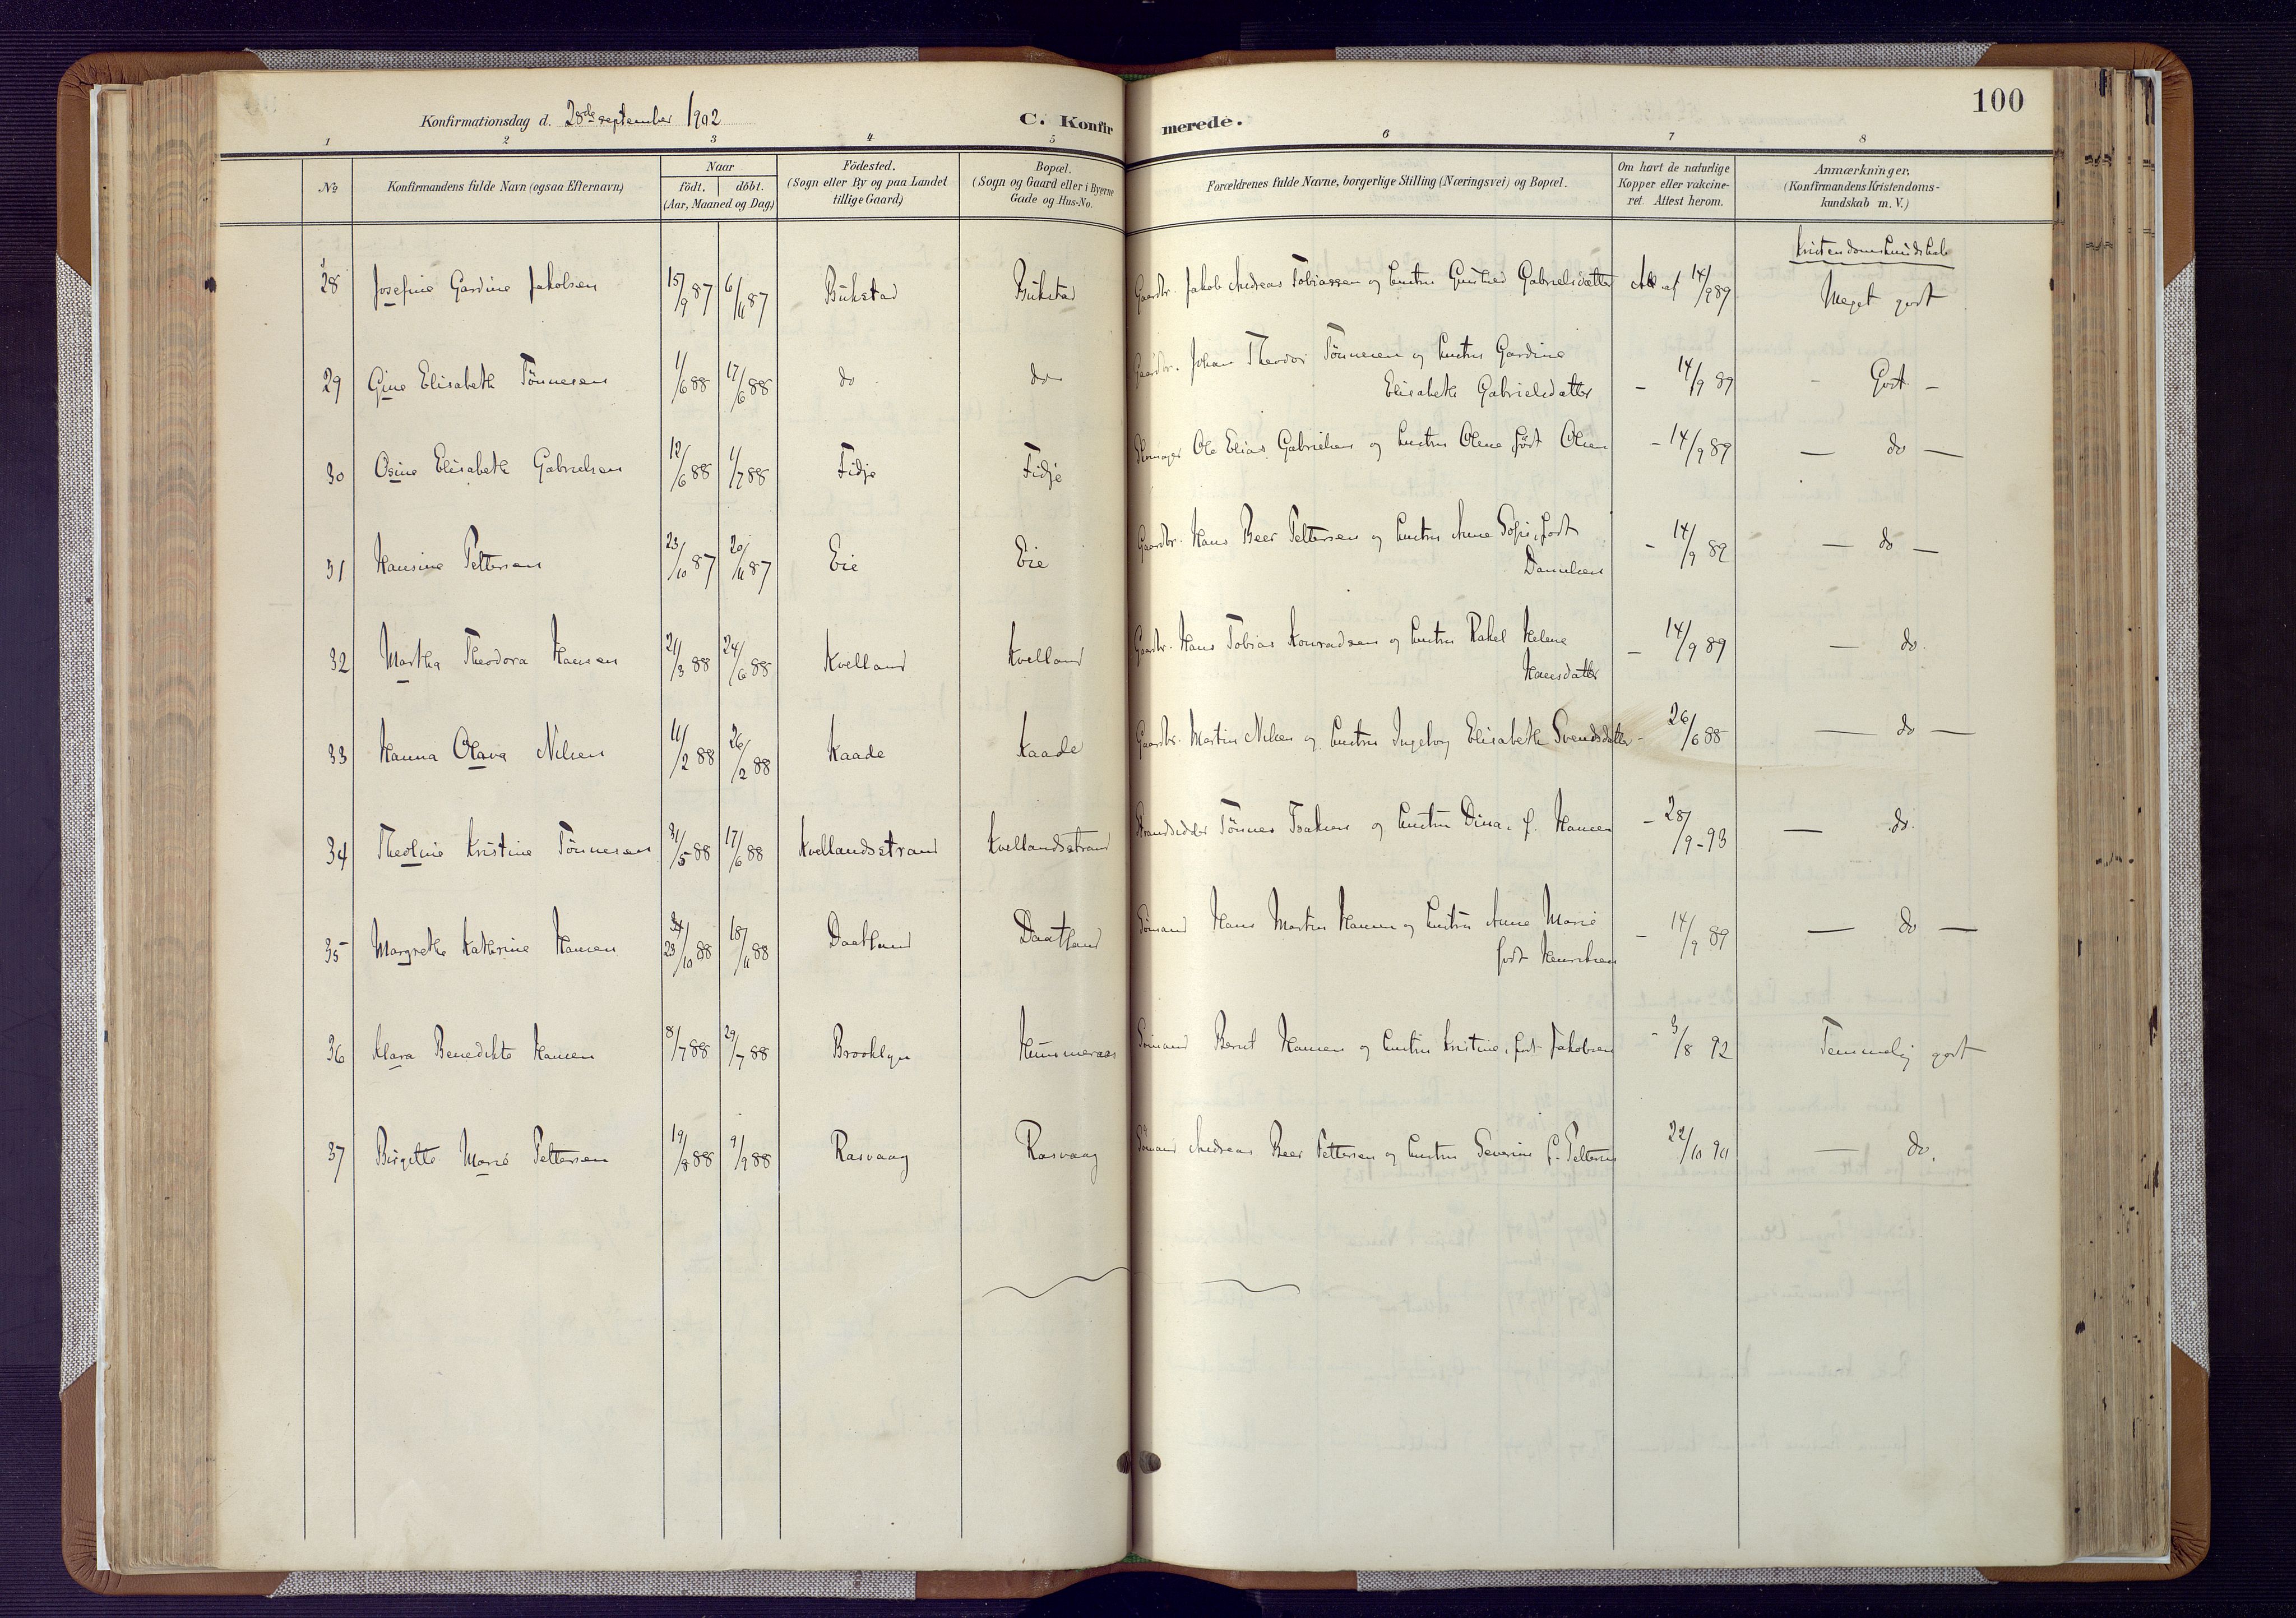 100
Konfirmationsdag d. 28de september 1902
C. Konfirmerede.
1 2 3 4 5 6 7 8
No
Konfirmandens fulde Navn (ogsaa Efternavn)
Naar
födt. döbt.
(Aar, Maaned og Dag)
Födested.
(Sogn eller By og paa Landet
tillige Gaard)
Bopæl.
(Sogn og Gaard eller i Byerne
Gade og Hus-No.
Forældrenes fulde Navne, borgerlige Stilling (Næringsvei) og Bopæl.
Om havt de naturlige
Kopper eller vakcine-
ret. Attest herom.
Anmærkninger.
(Konfirmandens Kristendoms-
kundskab m. V.)
Kristendomskundskab
28 Josefine Gardine Jakobsen 15/9 87 6/11 87 Bukstad Bukstad Gaardbr. Jakob Andreas Tobiassen og hustru Gunhild Gabrielsdatter Att af 14/9 89 Meget godt
29 Gine Elisabeth Tönnesen 1/6 88 17/6 88 do do Gaardbr. Johan Theodor Tönnesen og hustru Gardine
Elisabeth Gabrielsdatter - 14/9 89 - Godt -
30 Osine Elisabeth Gabrielsen 12/6 88 1/7 88 Fidje Fidje Ole Elias Gabrielsen og hustru Olene født Olsen - 14/9 89 — do —
31 Hansine Pettersen 23/10 87 20/11 87 Eie Eie Gaardbr. Hans Beer Pettersen og hustru Anne Sofie, født
Danielsen - 14/9 89 — do —
32 Martha Theodora Hansen 21/3 88 24/6 88 Kvelland Kvelland Gaardbr. Hans Tobias Konradsen og hustru Rakel Helene
Hansdatter - 14/9 89 — do.
33 Hanna Olava Nilsen 11/2 88 26/2 88 Kaade Kaade Gaardbr. Martin Nilsen og hustru Ingeborg Elisabeth Svendsdatter - 26/6 88 — do —
34 Theoline Kristine Tönnesen 31/5 88 17/6 88 Kvellandsstrand Kvellandsstrand Strandsidder Tönnes Isaksen og hustru Dina, f. Hansen - 28/9-93 — do.
35 Margrethe Kathrine Hansen 23/10 88 18/11 88 Daatland Daatland Sömand Hans Martin Hansen og hustru Anne Marie
født Henriksen - 14/9 89 — do —
36 Klara Benedikte Hansen 8/7 88 29/7 88 Brooklyn Hummeraas Sömand Bernt Hansen og hustru Kristine, født Jakobsen - 3/8 92 Temmelig godt
37 Birgitte Marie Pettersen 19/8 88 9/9 88 Rasvaag Rasvaag Sömand Andreas Beer Pettersen og hustru Severine f. Pettersen 22/10 90 — do.